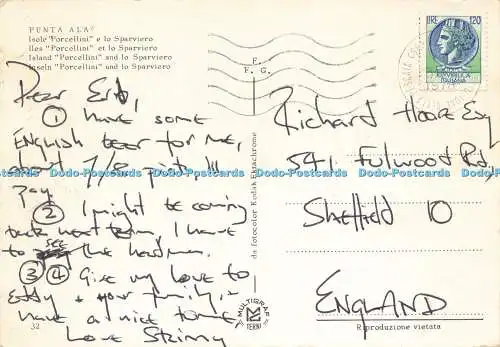 PUNTA ALA
Isole "Porcellini" e lo Sparviero
Iles "Porcellini" et lo Sparviero
Island "Porcellini" and lo Sparviero
Inseln "Porcellini" und lo Sparviero
Dear
① Have some
English beer for me,
about 7/8 pints I'll
Pay
② I might be coming
back next term, I have
to see the headman.
③④ Give my love to,
Eddy + your family,
have a nice time
Love
32
E.
F. G.
da fotocolor Kodak Ektachrome
MULTIGRAF
TERNI
LIRE 120
REPUBBLICA
ITALIANA
Richard Hoare Esq
541, Fulwood Rd,
Sheffield 10
ENGLAND
Riproduzione vietata
Dodo-Postcards